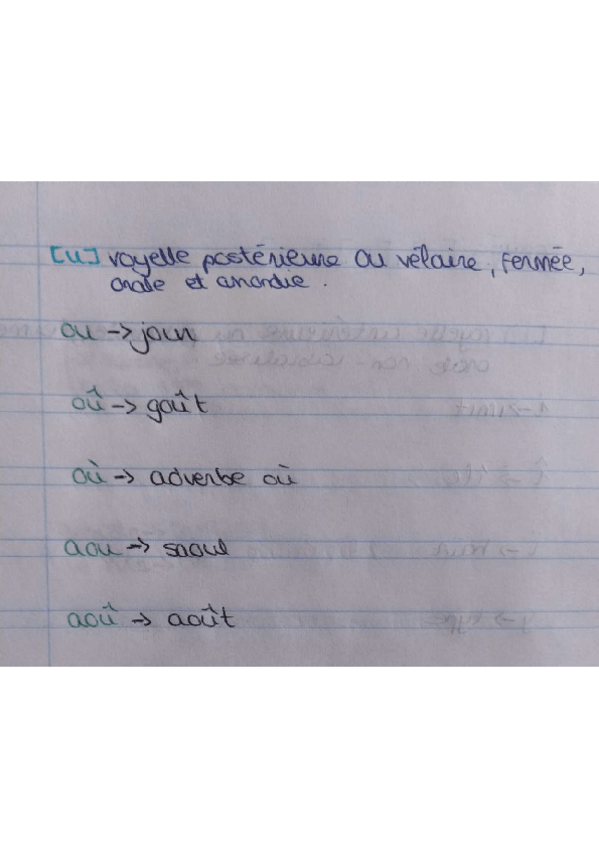 [u] voyelle postérieure ou vélaire, fermée,
orale et arrondie.
ou -> jour
oû -> goût
où -> adverbe où
aou -> saoul
aoû -> août